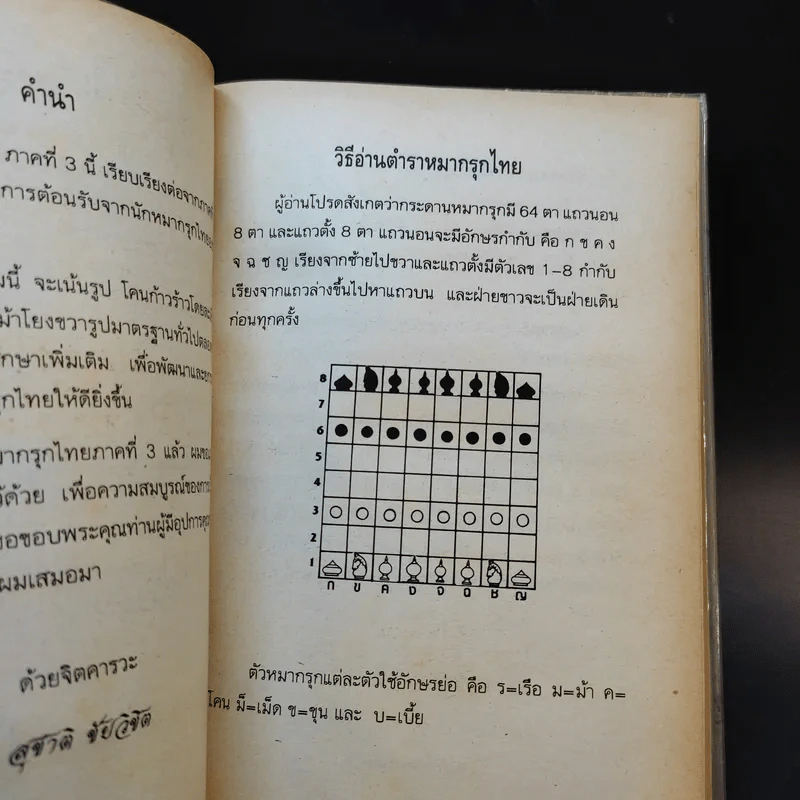 คำนำ
ภาคที่ 3 นี้ เรียบเรียงต่อจากภาค
การต้อนรับจากนักหมากรุกไทย
มนี้ จะเน้นรูป โคนก้าวร้าวโดย
ม้าโยงขวารูปมาตรฐานทั่วไปตลอด
ศึกษาเพิ่มเติม เพื่อพัฒนาและ
รุกไทยให้ดียิ่งขึ้น
มากรุกไทยภาคที่ 3 แล้ว ผมขอ
ไว้ด้วย เพื่อความสมบูรณ์ของการ
ขอขอบพระคุณท่านผู้มีอุปการคุณ
ผมเสมอมา
ด้วยจิตคารวะ
สุชาติ ชัยวิชิต
วิธีอ่านตำราหมากรุกไทย
ผู้อ่านโปรดสังเกตว่ากระดานหมากรุกมี 64 ตา แถวนอน
8 ตา และแถวตั้ง 8 ตา แถวนอนจะมีอักษรกำกับ คือ ก ข ค ง
จ ฉ ช ญ เรียงจากซ้ายไปขวาและแถวตั้งมีตัวเลข 1-8 กำกับ
เรียงจากแถวล่างขึ้นไปหาแถวบน และฝ่ายขาวจะเป็นฝ่ายเดิน
ก่อนทุกครั้ง
8
7
6
5
4
3
2
1
ก ข ค ง จ ฉ ช ญ
ตัวหมากรุกแต่ละตัวใช้อักษรย่อ คือ ร=เรือ ม=ม้า ค=
โคน ม็=เม็ด ข=ขุน และ บ=เบี้ย